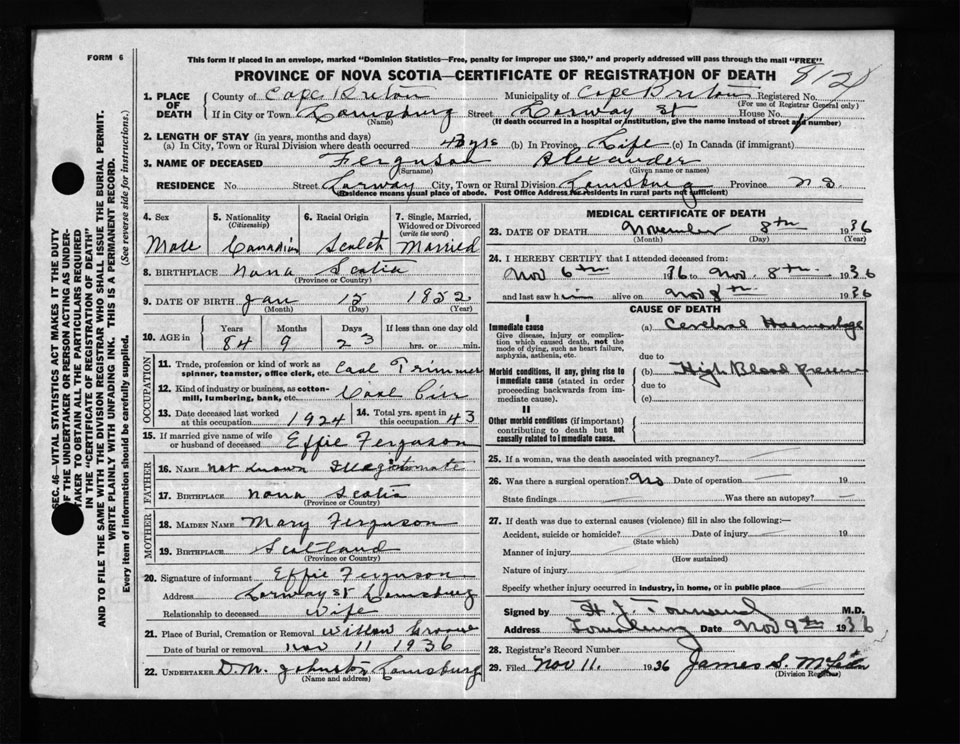 FORM 6
This form if placed in an envelope, marked "Dominion Statistics—Free, penalty for improper use $300," and properly addressed will pass through the mail "FREE"
PROVINCE OF NOVA SCOTIA—CERTIFICATE OF REGISTRATION OF DEATH
1. PLACE OF DEATH
County of Cape Breton Municipality of Cape Breton Registered No.
(For use of Registrar General only)
If in City or Town Louisburg Street House No.
(Name) (If death occurred in a hospital or institution, give the name instead of street and number)
2. LENGTH OF STAY (in years, months and days)
(a) In City, Town or Rural Division where death occurred 43 yrs (b) In Province Life (c) In Canada (if immigrant)
3. NAME OF DECEASED Ferguson Alexander
(Surname) (Given name or names)
RESIDENCE No Street City, Town or Rural Division Louisburg Province N.S.
(Residence means usual place of abode. Post Office Address for residents in rural parts not sufficient)
4. Sex Male
5. Nationality (Citizenship) Canadian
6. Racial Origin Scotch
7. Single, Married, Widowed or Divorced (write the word) Married
8. BIRTHPLACE Nova Scotia
(Province or Country)
9. DATE OF BIRTH Jan 15 1852
(Month) (Day) (Year)
10. AGE in Years Months Days If less than one day old
84 9 23 hrs. or min.
OCCUPATION
11. Trade, profession or kind of work as spinner, teamster, office clerk, etc. Coal Trimmer
12. Kind of industry or business, as cotton-mill, lumbering, bank, etc. Coal
13. Date deceased last worked at this occupation 1924
14. Total yrs. spent in this occupation 43
15. If married give name of wife or husband of deceased Effie Ferguson
FATHER
16. NAME not known Illegitimate
17. BIRTHPLACE Nova Scotia
(Province or Country)
MOTHER
18. MAIDEN NAME Mary Ferguson
19. BIRTHPLACE Scotland
(Province or Country)
20. Signature of informant Effie Ferguson
Address St Louisburg
Relationship to deceased Wife
21. Place of Burial, Cremation or Removal Willow Grove
Date of burial or removal Nov 11 1936
22. UNDERTAKER D.M. Johnston Louisburg
(Name and address)
MEDICAL CERTIFICATE OF DEATH
23. DATE OF DEATH November 8th 1936
(Month) (Day) (Year)
24. I HEREBY CERTIFY that I attended deceased from:
Nov 6th 1936 to Nov. 8th 1936
and last saw him alive on Nov 8th 1936
CAUSE OF DEATH
I
Immediate cause
Give disease, injury or complication which caused death, not the mode of dying, such as heart failure, asphyxia, asthenia, etc.
(a) Cerebral Haemorrhage
due to
Morbid conditions, if any, giving rise to immediate cause (stated in order proceeding backwards from immediate cause).
(b) High Blood Pressure
due to
(c)
II
Other morbid conditions (if important) contributing to death but not causally related to immediate cause.
25. If a woman, was the death associated with pregnancy?
26. Was there a surgical operation? No Date of operation 19
State findings Was there an autopsy?
27. If death was due to external causes (violence) fill in also the following:—
Accident, suicide or homicide? Date of injury 19
(State which)
Manner of injury
(How sustained)
Nature of injury
Specify whether injury occurred in industry, in home, or in public place
Signed by H. J. Townsend M.D.
Address Louisburg Date Nov 9th 1936
28. Registrar's Record Number
29. Filed Nov 11. 1936 James S.
(Division Registrar)
SEC. 46—VITAL STATISTICS ACT MAKES IT THE DUTY
OF THE UNDERTAKER OR PERSON ACTING AS UNDER-
TAKER TO OBTAIN ALL THE PARTICULARS REQUIRED
IN THE "CERTIFICATE OF REGISTRATION OF DEATH"
AND TO FILE THE SAME WITH THE DIVISION REGISTRAR WHO SHALL ISSUE THE BURIAL PERMIT.
WRITE PLAINLY WITH UNFADING INK. THIS IS A PERMANENT RECORD.
Every item of information should be carefully supplied. (See reverse side for instructions.)